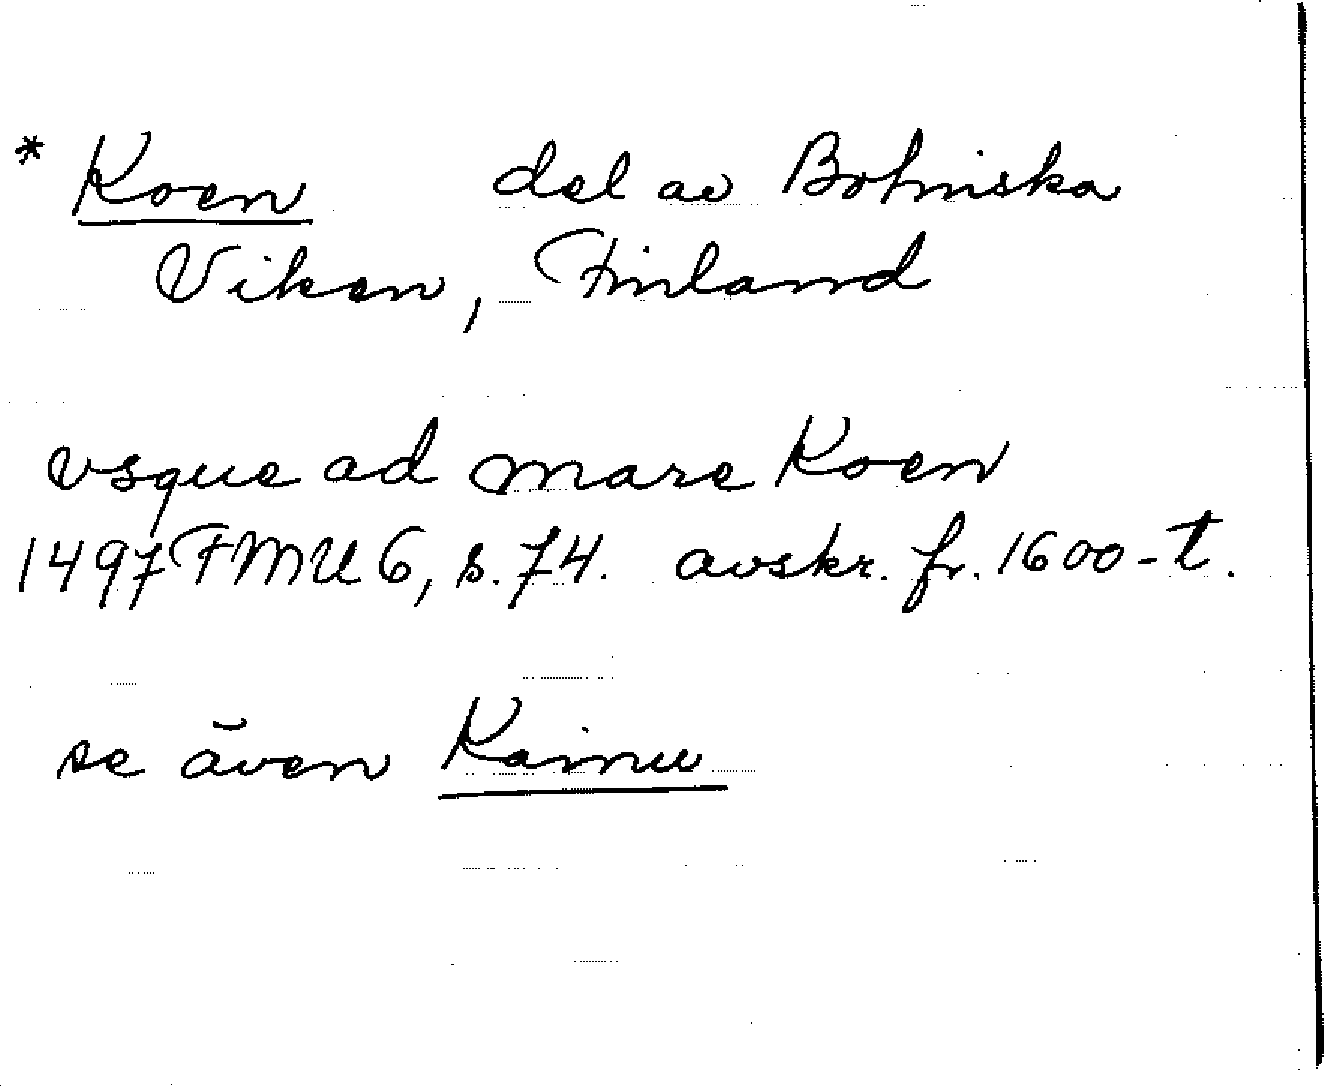 * Koen del av Botniska
Viken, Finland
vsque ad mare Koen
1497 FMU 6, s. 74. avskr. fr. 1600-t.
se även Kainu